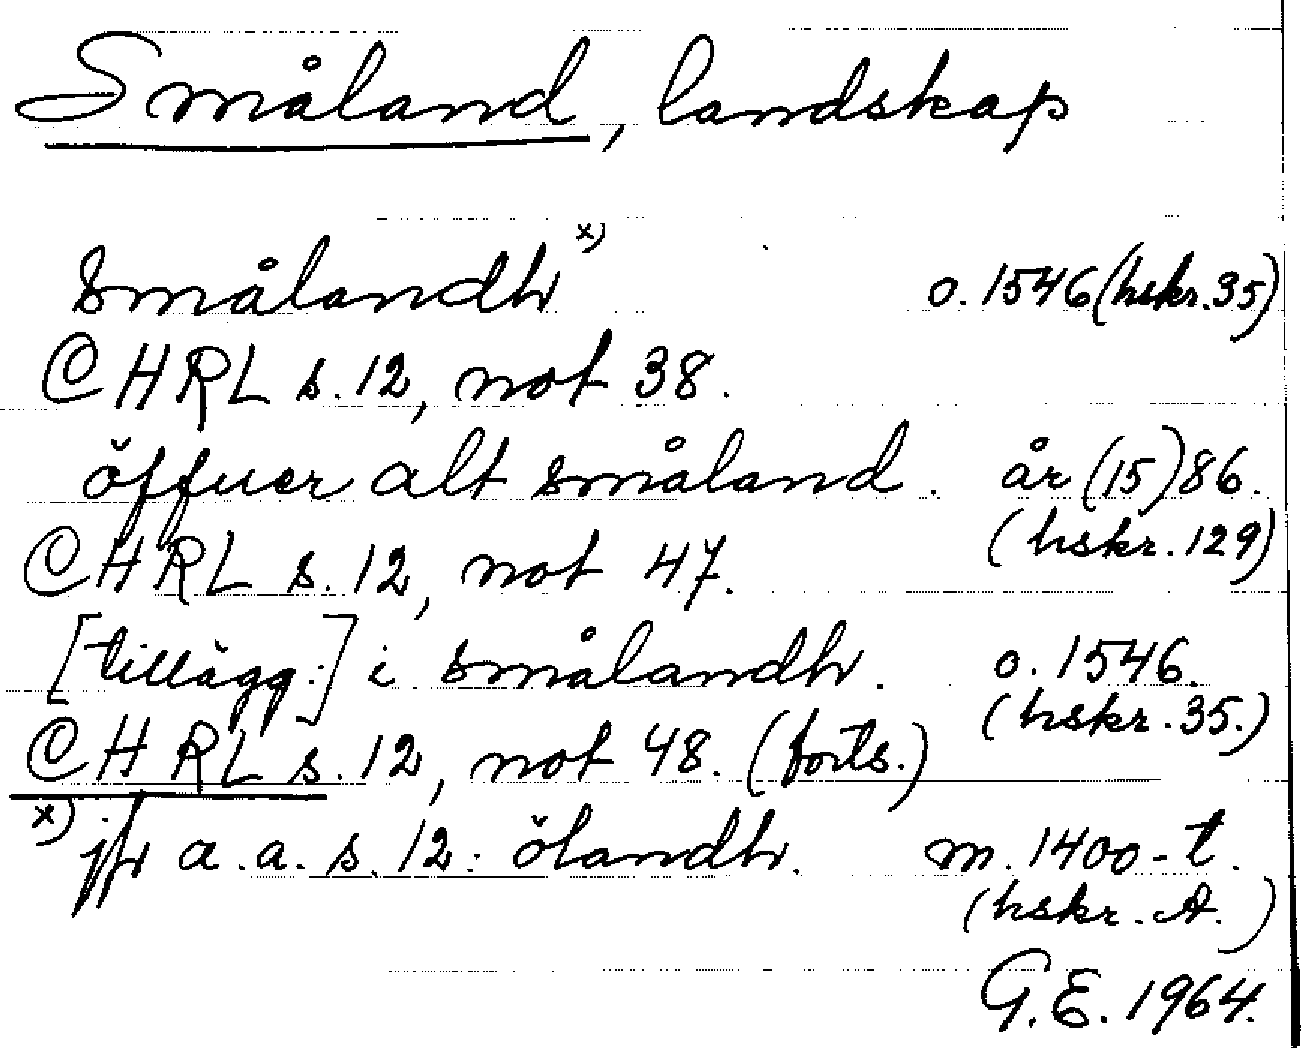 Småland, landskap
Smålandh x) o. 1546 (hskr. 35)
CHRL s. 12, not 38.
öffuer alt småland. år (15)86.
(hskr. 129)
CHRL s. 12, not 47.
[tillägg:] i smålandh. o. 1546.
(hskr. 35.)
CHRL s. 12, not 48. (forts.)
x) jfr a. a. s. 12: ölandh. m. 1400-t.
(hskr. A.)
G. E. 1964.